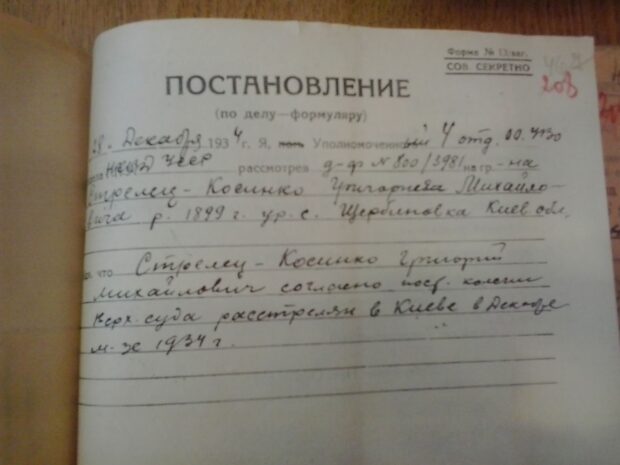 Форма № 13/заг.
СОВ. СЕКРЕТНО
203
ПОСТАНОВЛЕНИЕ
(по делу—формуляру)
28. Декабря 1934 г. Я, Уполномоченный 4 отд.
НКВД УССР рассмотрев д-ф N 800/3981 на гр-на
Стрелец-Косинко Григориева Михайло-
вича р. 1899 г. ур. с. Щербиновка Киев обл.
что Стрелец-Косинко Григорий
Михайлович согласно пост. колегии
Верх. суда расстрелян в Киеве в Декабре
м-це 1934 г.